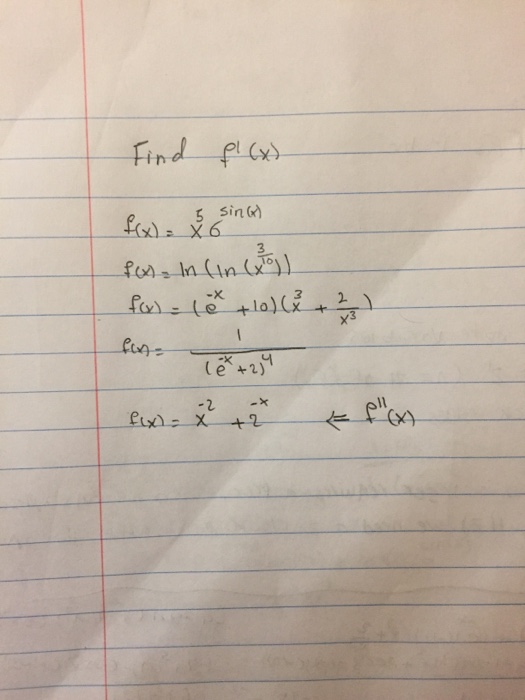 Find f'(x)
f(x) = x⁵ 6^sin(x)
f(x) = ln (ln (x^(3/10)))
f(x) = (e^-x + 10) (x³ + 2/x³)
f(x) = 1/(e^-x + 2)⁴
f(x) = x^-2 + 2^-x ⇐ f''(x)